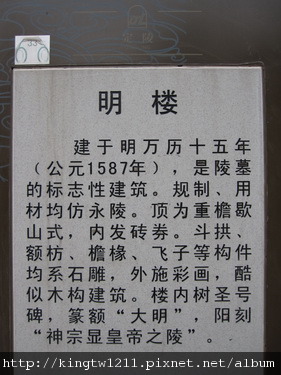 定陵
明 楼
建于明万历十五年
（公元1587年），是陵墓
的标志性建筑。规制、用
材均仿永陵。顶为重檐歇
山式，内发砖券。斗拱、
额枋、檐椽、飞子等构件
均系石雕，外施彩画，酷
似木构建筑。楼内树圣号
碑，篆额“大明”，阳刻
“神宗显皇帝之陵”。
http://kingtw1211.pixnet.net/album